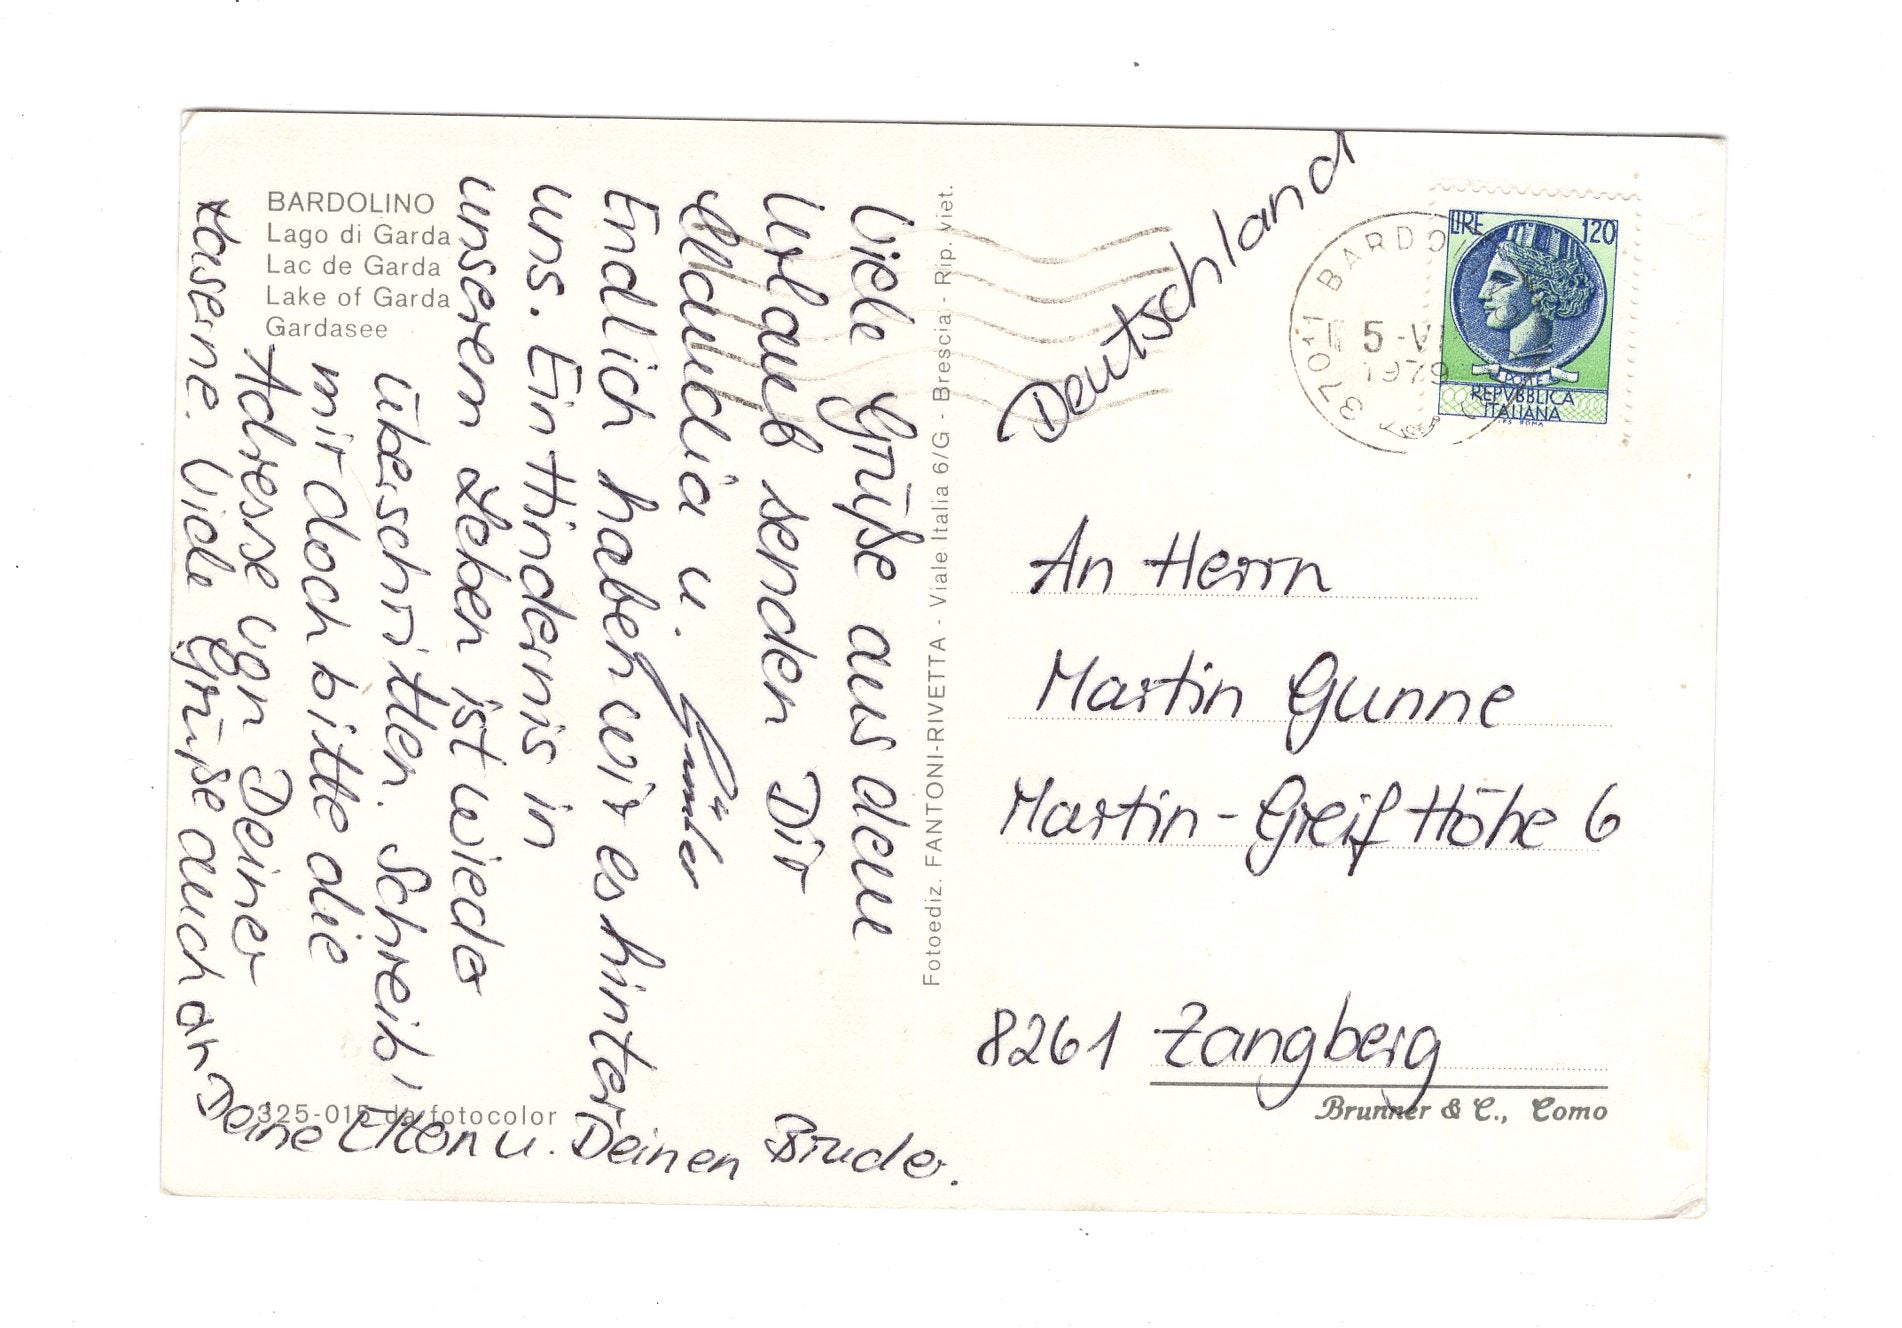 BARDOLINO
Lago di Garda
Lac de Garda
Lake of Garda
Gardasee
Viele Grüße aus dem
Urlaub senden Dir
Claudia u. Günter
Endlich haben wir es hinter
uns. Ein Hindernis in
unserem Leben ist wieder
überschritten. Schreib'
mir doch bitte die
Adresse von Deiner
Kaserne. Viele Grüße auch an
Deine Eltern u. Deinen Bruder.
325-015 da fotocolor
Fotoediz. FANTONI-RIVETTA - Viale Italia 6/G - Brescia - Rip. viet.
Deutschland
37011 BARDO
5 -VI
1979
LIRE 120
POSTE
REPVBBLICA
ITALIANA
I.P.S. ROMA
An Herrn
Martin Gunne
Martin-Greif Höhe 6
8261 Zangberg
Brunner & C., Como